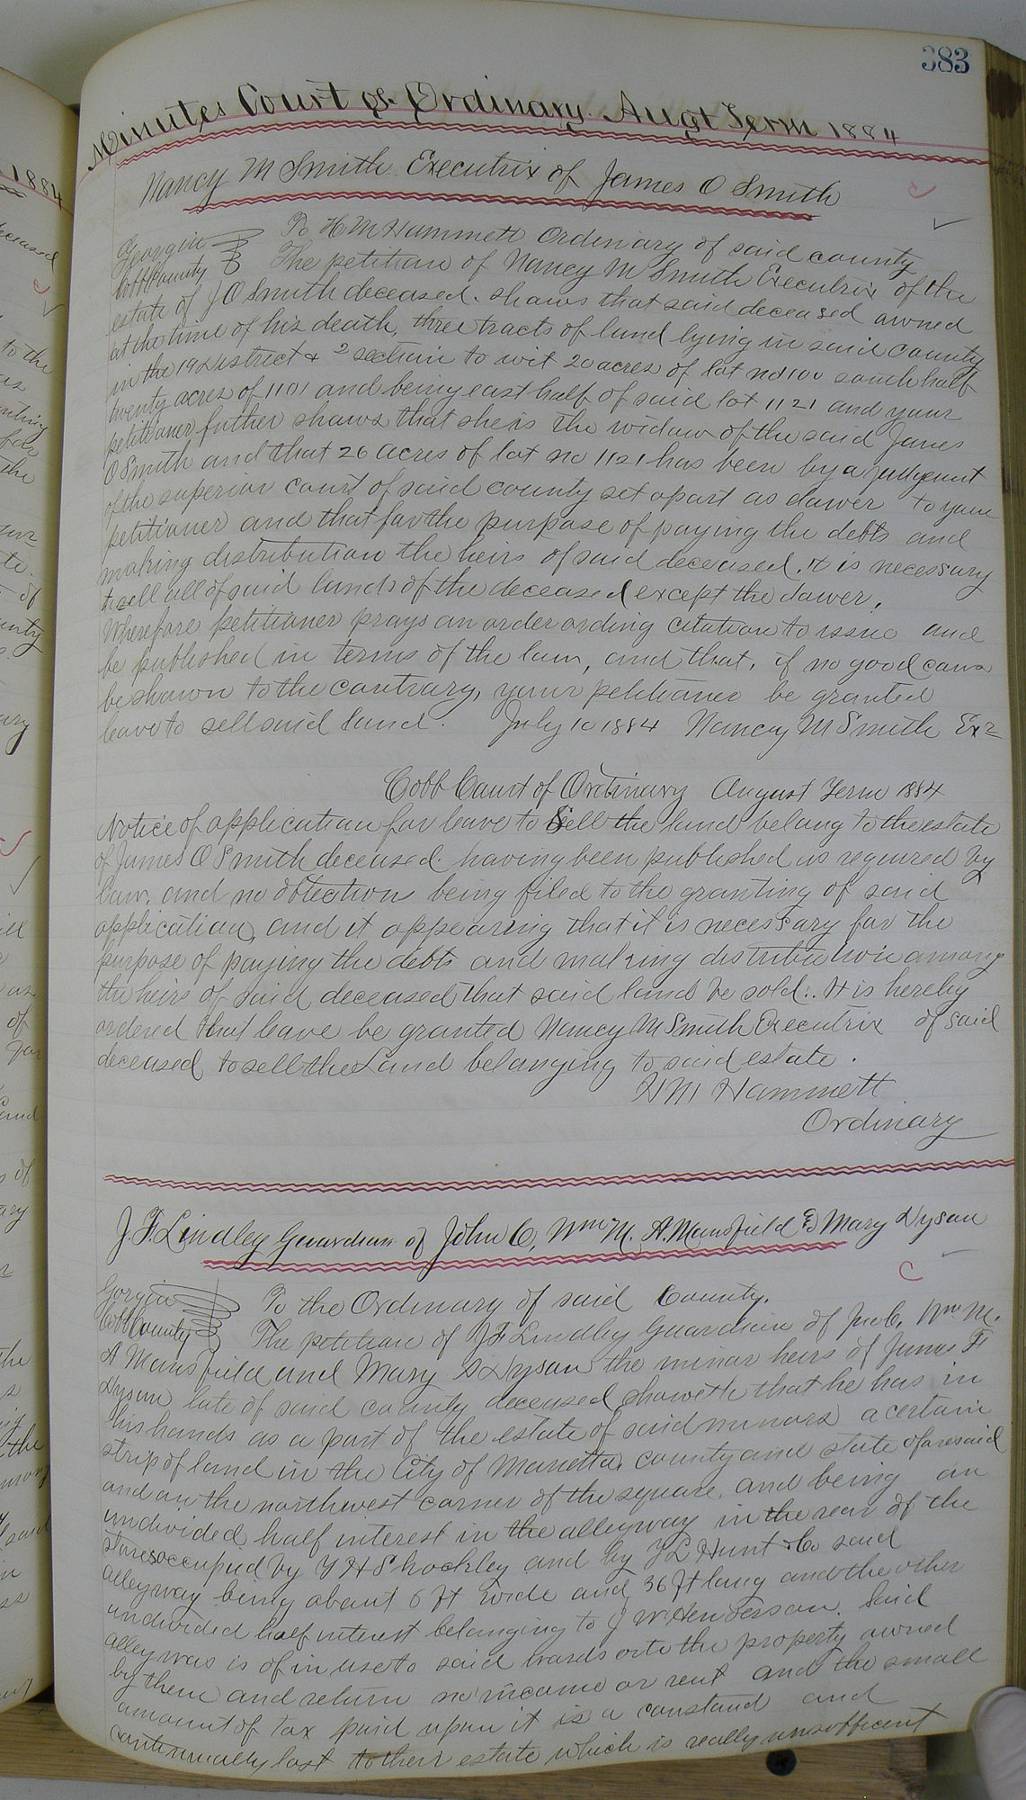 383
Minutes Court of Ordinary Augt Term 1884
Nancy M Smith Executrix of James O Smith
Georgia To H M Hammett Ordinary of said county
Cobb County The petition of Nancy M Smith Executrix of the
estate of J O Smith deceased. shows that said deceased owned
at the time of his death, three tracts of land lying in said county
in the 19 district & 2 section to wit 20 acres of lot no 1100 south half
twenty acres of 1101 and being east half of said lot 1121 and your
petitioner futher shows that she is the widow of the said James
O Smith and that 26 acres of lot no 1121 has been by a judgment
of the superior court of said county set apart as dower to your
petitioner and that for the purpose of paying the debts and
making distribution the heirs of said deceased, it is necessary
to sell all of said lands of the deceased except the dower,
Wherefore petitioner prays an order ording citation to issue and
be published in terms of the law, and that, if no good caus
be shown to the contrary, your petitioner be granted
leave to sell said land. July 10 1884 Nancy M Smith Exr
Cobb Court of Ordinary August Term 1884
Notice of application for leave to Sell the land belong to the estate
of James O Smith deceased. having been published as requred by
law, and no obtection being filed to the granting of said
application, and it appearing that it is necessary for the
purpose of paying the debts and making distribution among
the heirs of said deceased that said land be sold.. It is hereby
ordered that leave be granted Nancy M Smith Executrix of said
deceased to sell the Land belonging to said estate.
H M Hammett
Ordinary
J. F. Lindley Guardian of John C, Wm M. A. Mansfield & Mary Dyson
Gorgia To the Ordinary of said County.
Cobb County The petition of J F Lindley Guardian of Jno C, Wm M.
A Mansfield and Mary Dyson the minor heirs of James F
Dyson, late of said county deceased showeth that he has in
his hands as a part of the estate of said minors a certain
strip of land in the City of Marietta, county and state aforesaid
and on the northwest corner of the square, and being an
undivided half interest in the alleyway in the rear of the
stores occupied by Y H Shockley and by J L Hunt & Co said
alleyway being about 6 ft wide and 36 ft long and the other
undivided half interest belonging to J W Henderson. Said
alley was is of in use to said wards or to the property owned
by them and return no income or rent and the small
amount of tax paid upon it is a constand and
continually lost to their estate, which is really unsofficent